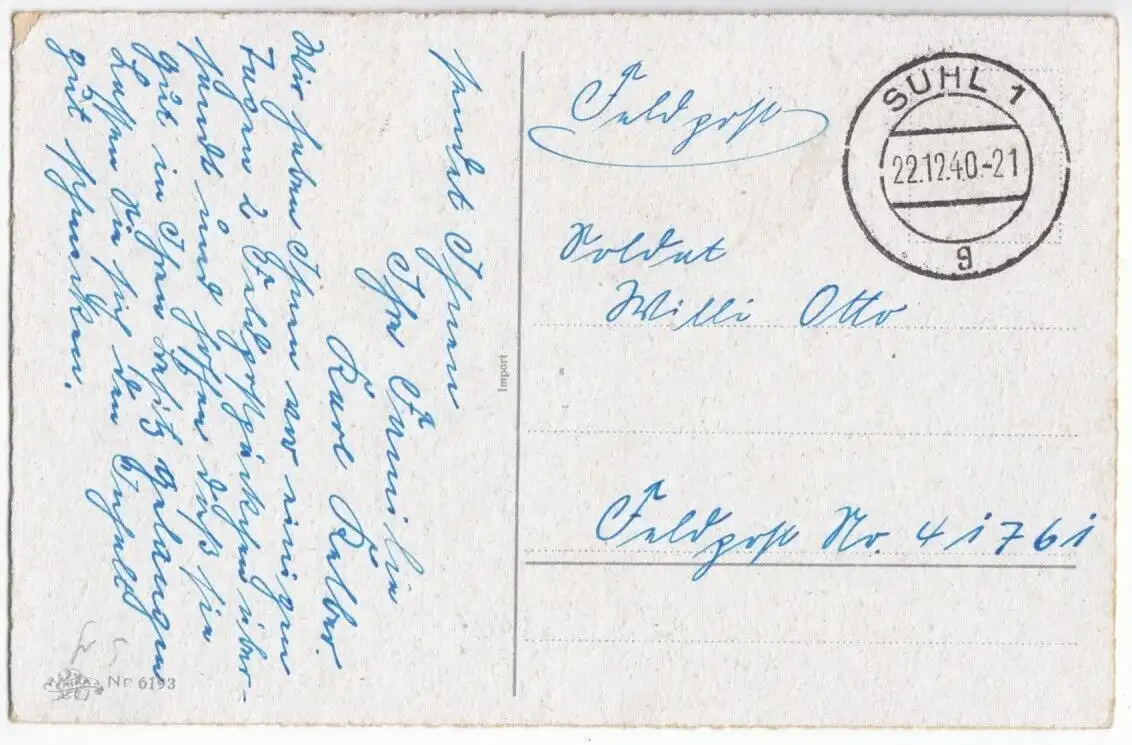 sendet Ihnen
Ihre Familie
Karl Kelber.
Wir haben Ihnen vor einigen
Tagen 2 Feldpostpäckchen über-
sandt und hoffen daß sie
gut in Ihren Besitz gelangen
Lassen Sie sich den Inhalt
gut schmecken.
Nr 6193
Import
Feldpost
SUHL 1
22.12.40.-21
g
Soldat
Willi Otto
Feldpost Nr. 41761